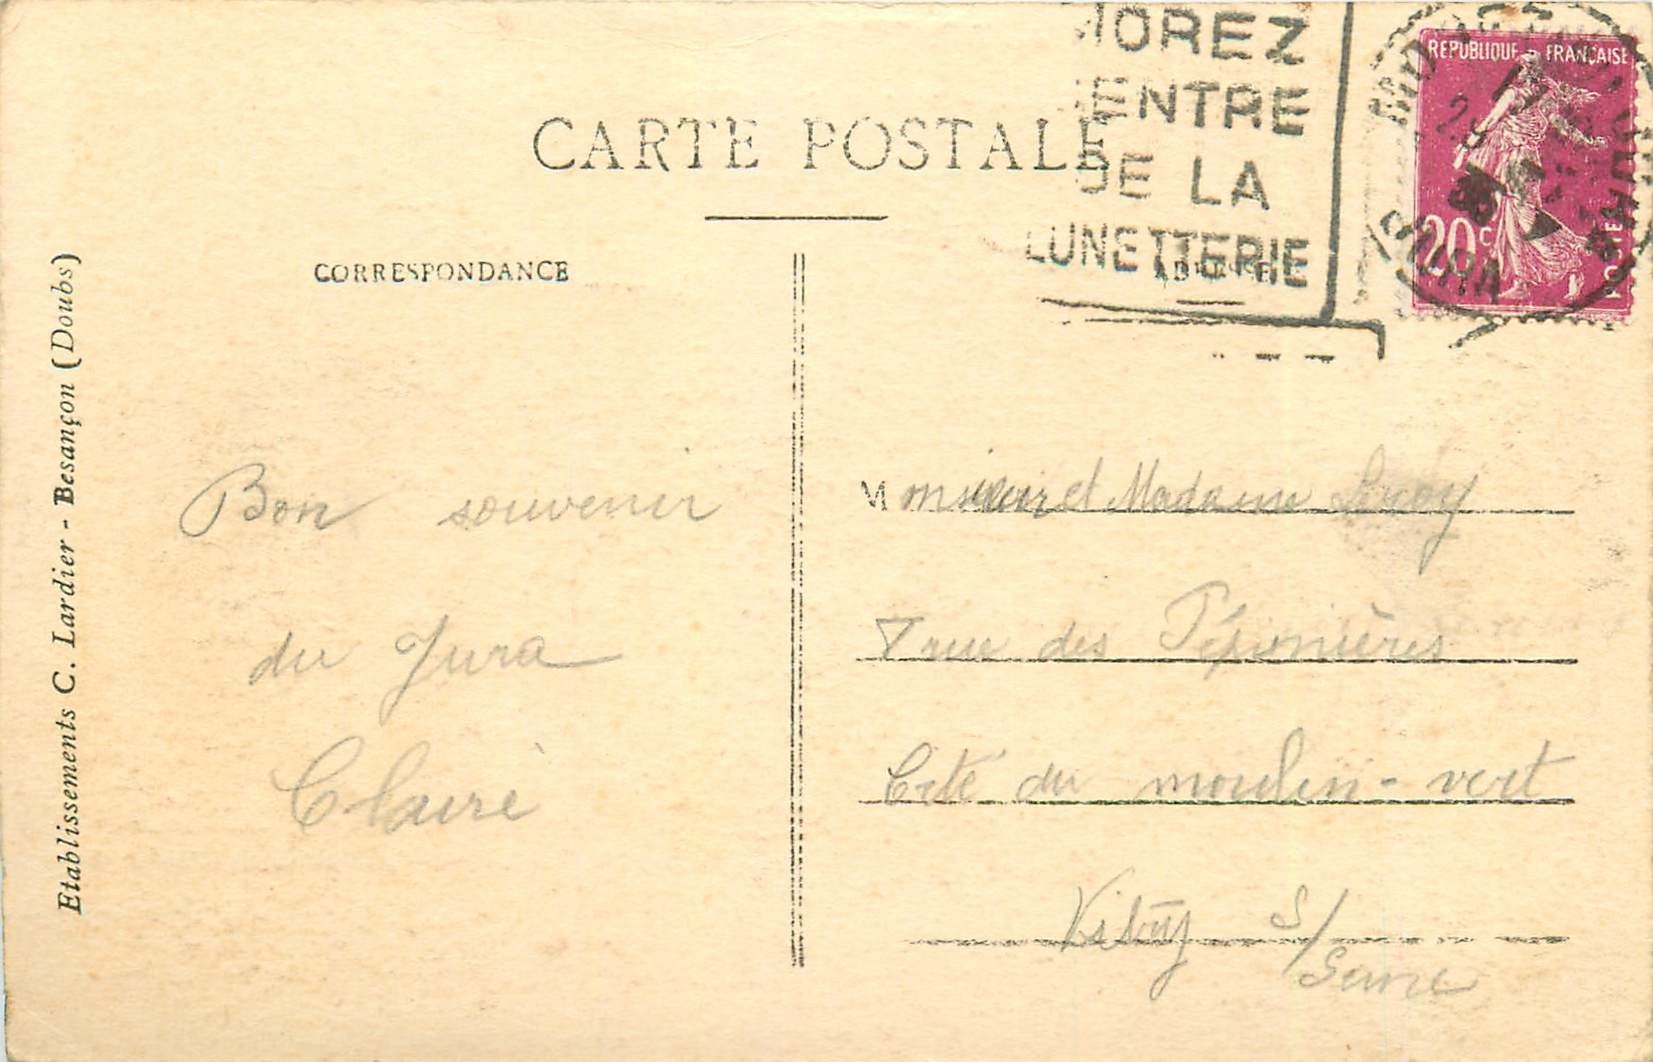 MOREZ
CENTRE
DE LA
LUNETTERIE
REPUBLIQUE FRANÇAISE
20c
POSTES
JURA
CARTE POSTALE
CORRESPONDANCE
Etablissements C. Lardier - Besançon (Doubs)
Bon souvenir
du Jura
Claire
Monsieur et Madame Leroy
7 rue des Pépinières
Cité du moulin-vert
Vitry S/
Seine